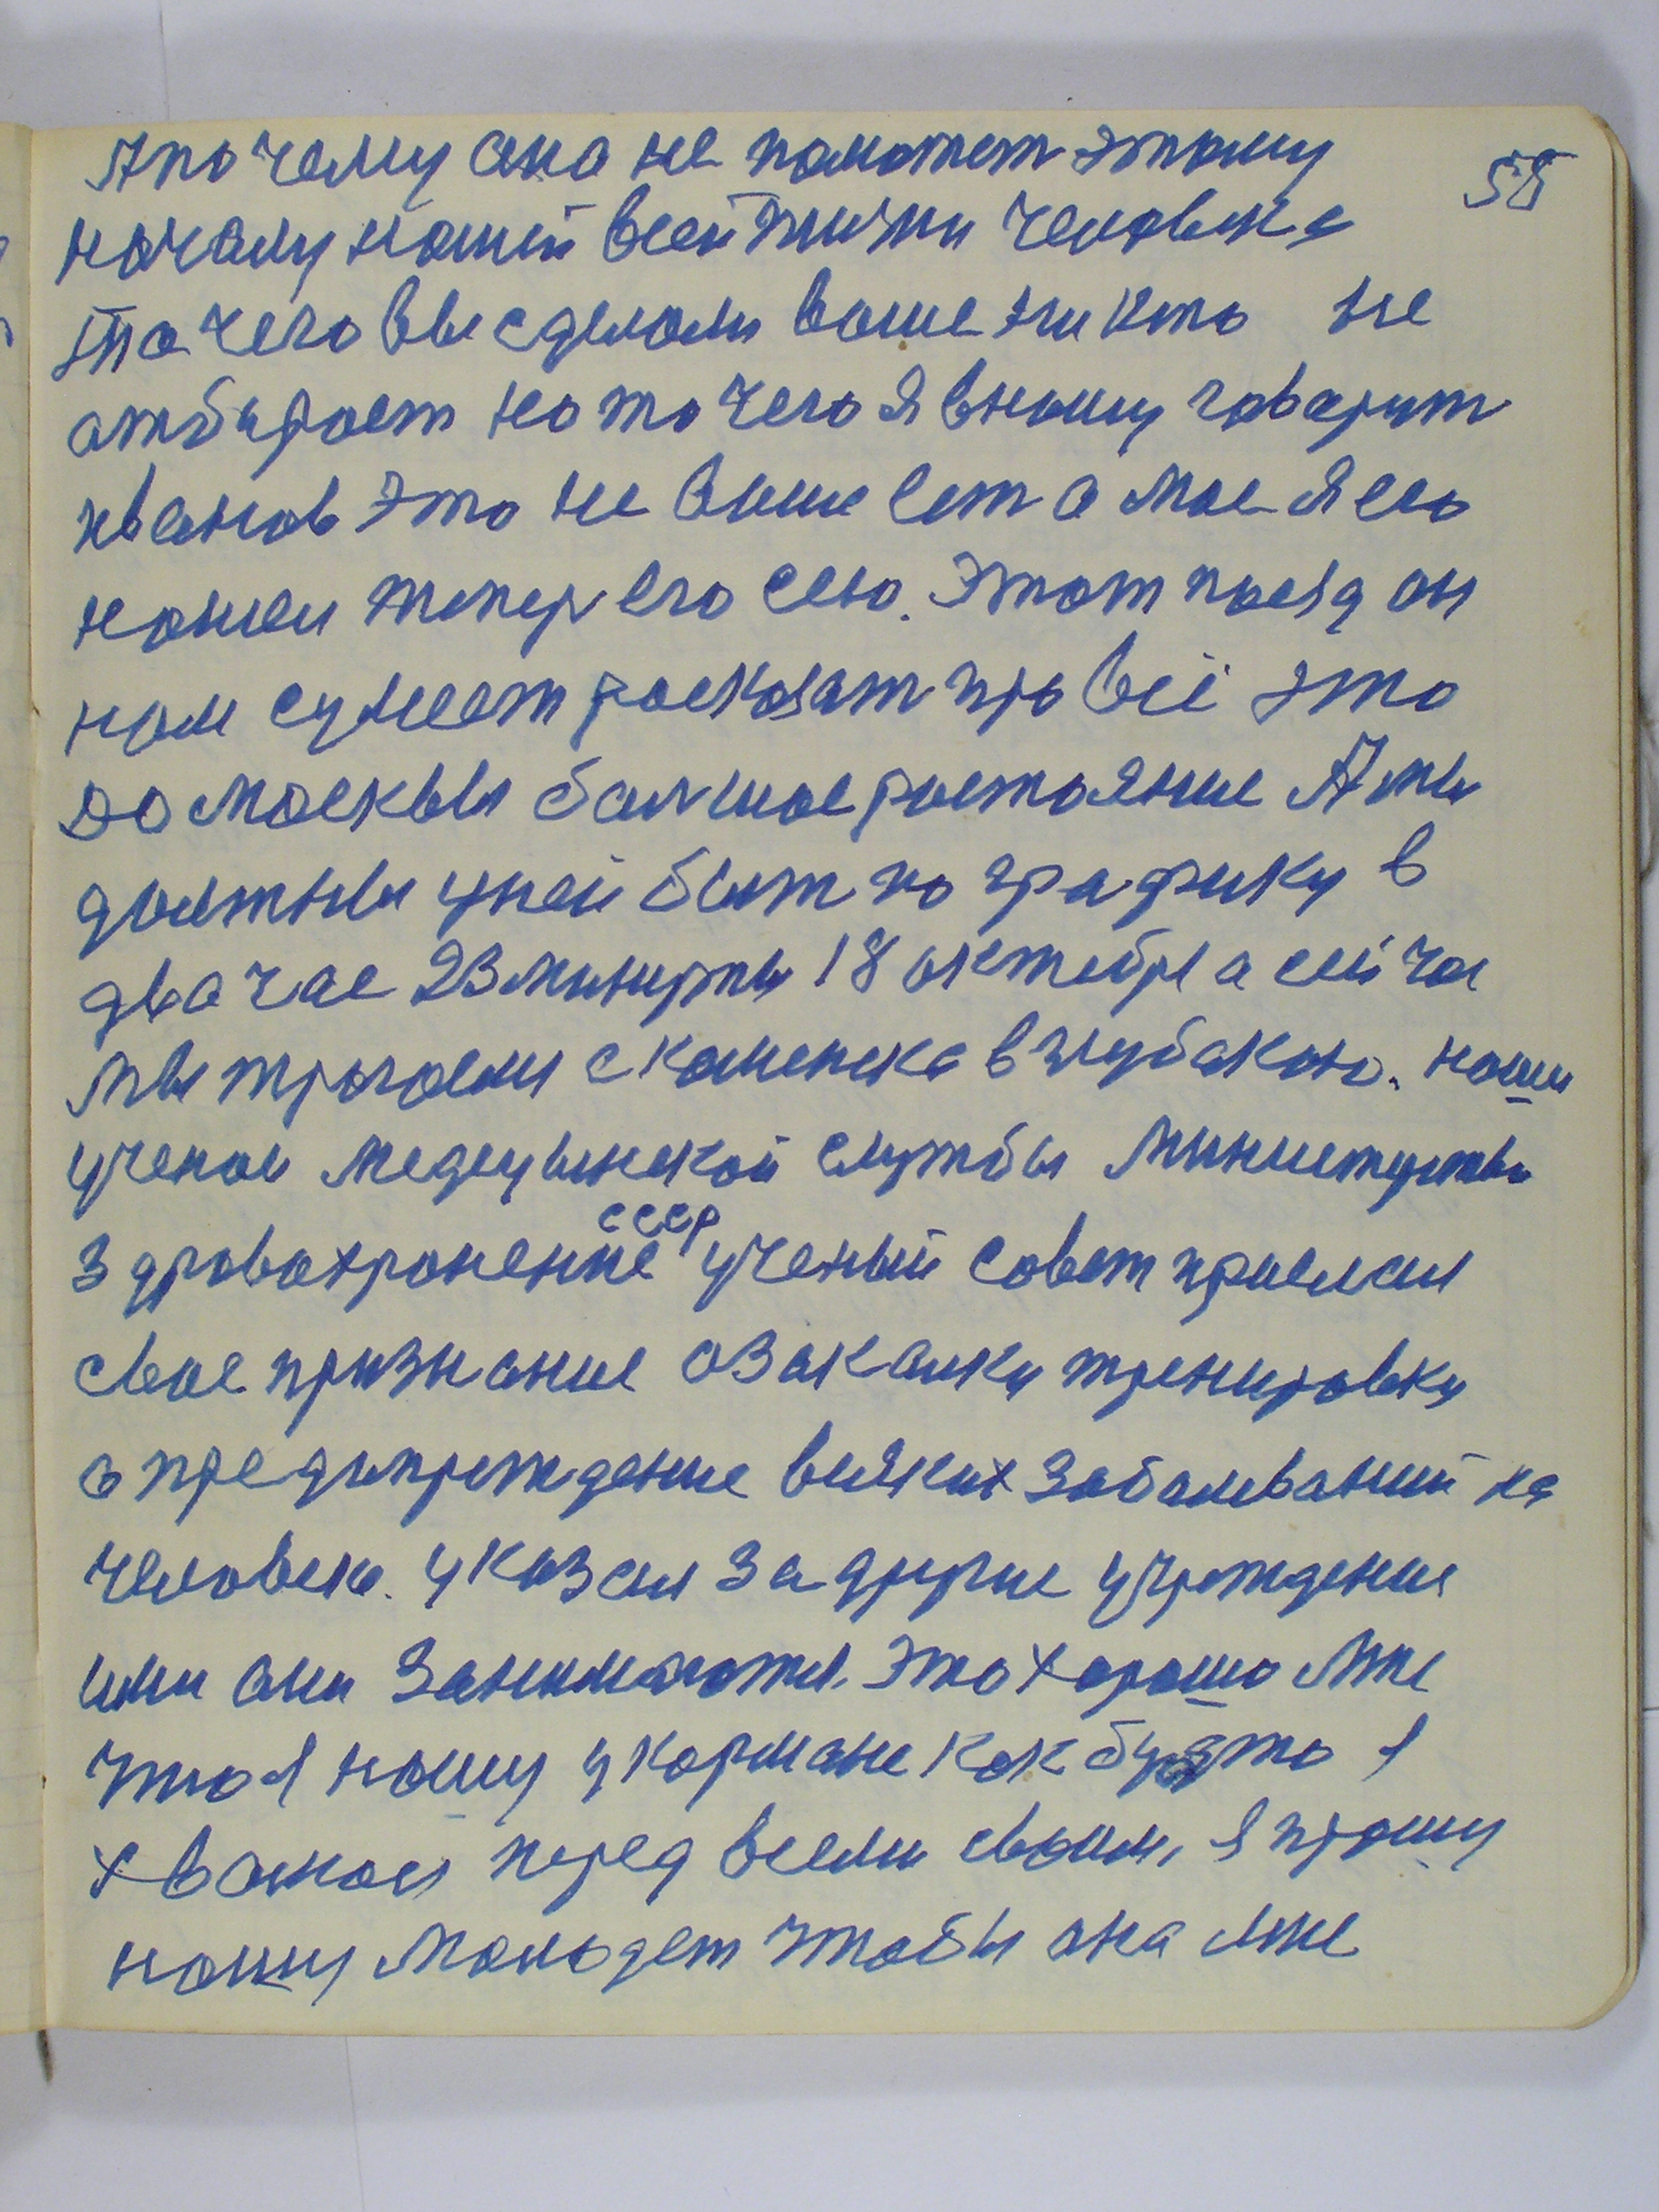 55
А почему она не поможет этому
началу нашей всей жизни человека
то чего вы сделали ваше ни кто не
отбирает но то чего я вношу говарит
иванов это не ваше ест а мое я его
нашел тепер его сею. Этот поезд он
нам сумеет росказат про всё это
до москвы болшое ростояние А мы
должны у ней быт по графику в
два час 23 минуты 18 октебря а сейчас
мы трогаем с каменска в глубокою. наши
ученои медецынской службы Министерства
Здравохронение СССР ученый совет приелсил
свое признание о закалки тренировки
о предыпреждение всяких заболеваний на
человеке. указал за другие учреждения
ими они занимаются. Это хорошо мне
что я ношу у кормане как будто я
хвалюся перед всеми своим, я прошу
нашу молодеж чтобы она мне